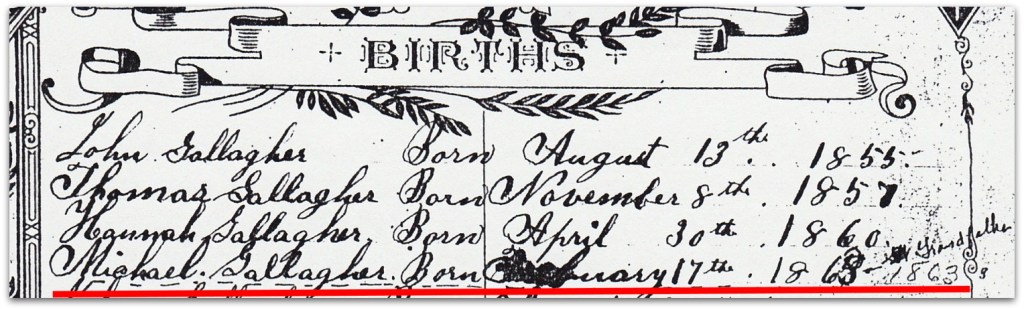 BIRTHS
John Gallagher Born August 13th. 1855.
Thomas Gallagher Born November 8th. 1857.
Hannah Gallagher, Born April 30th. 1860.
Michael. Gallagher. Born 17th. 1863 - 1863
Grandfather